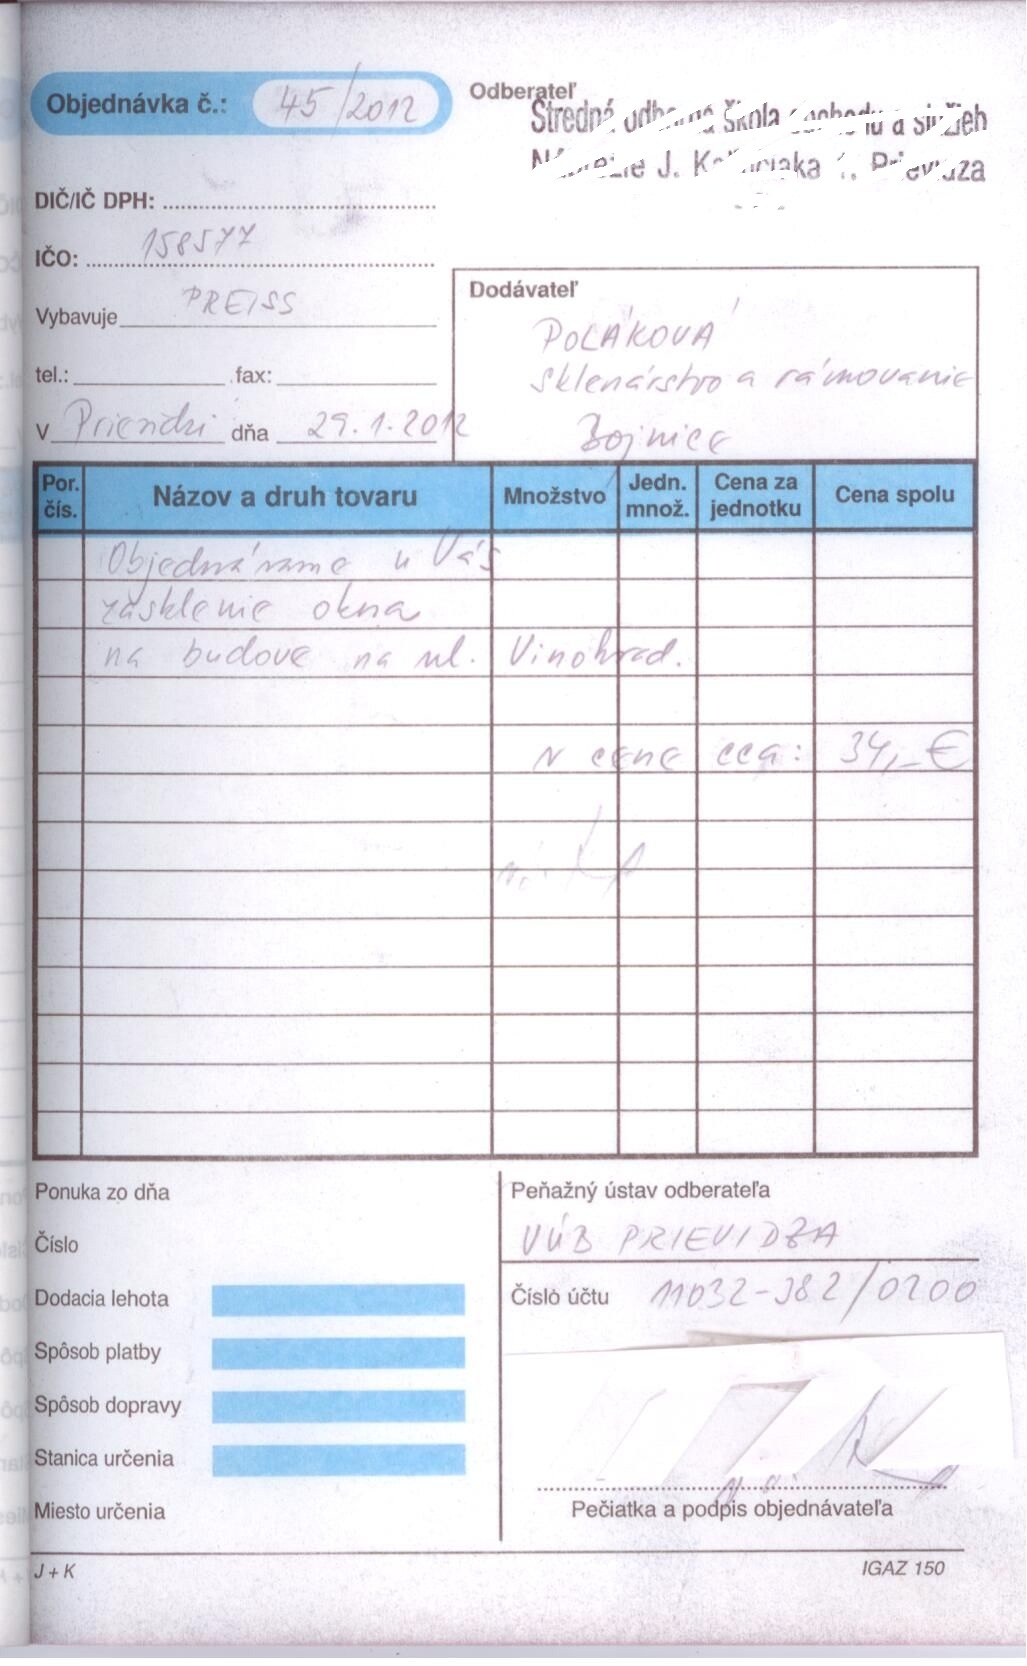 Objednávka č.: 45/2012
Odberateľ
Stredná odborná škola obchodu a služieb
Nábrežie J. Kalinčiaka 1, Prievidza
DIČ/IČ DPH:
IČO: 158577
Vybavuje PREISS
tel.: fax:
V Prievidzi dňa 29.1.2012
Dodávateľ
POLÁKOVÁ
sklenárstvo a rámovanie
Bojnice
Por. čís. Názov a druh tovaru Množstvo Jedn. množ. Cena za jednotku Cena spolu
Objednávame u Vás
zasklenie okna
na budove na ul. Vinohrad.
v cene cca: 34,- €
Ponuka zo dňa
Číslo
Dodacia lehota
Spôsob platby
Spôsob dopravy
Stanica určenia
Miesto určenia
Peňažný ústav odberateľa
VÚB PRIEVIDZA
Číslo účtu 11032-382/0200
Pečiatka a podpis objednávateľa
J + K
IGAZ 150